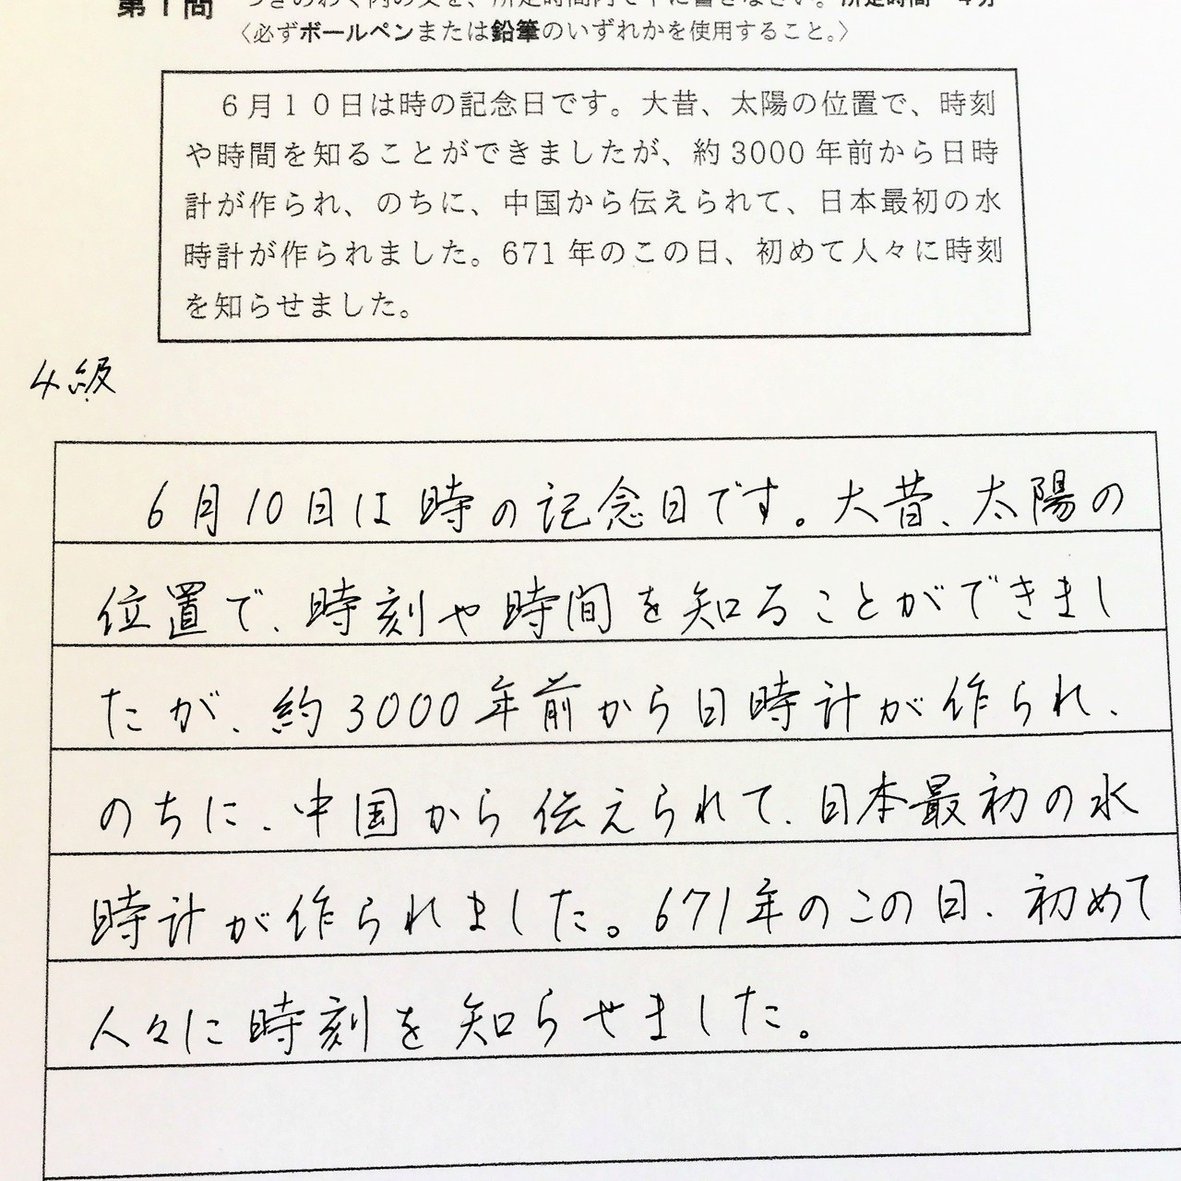 第1問 つぎのわく内の文を、所定時間内で下に書きなさい。所定時間 4分
〈必ずボールペンまたは鉛筆のいずれかを使用すること。〉
6月10日は時の記念日です。大昔、太陽の位置で、時刻
や時間を知ることができましたが、約3000年前から日時
計が作られ、のちに、中国から伝えられて、日本最初の水
時計が作られました。671年のこの日、初めて人々に時刻
を知らせました。
4級
6月10日は時の記念日です。大昔、太陽の
位置で、時刻や時間を知ることができまし
たが、約3000年前から日時計が作られ、
のちに、中国から伝えられて、日本最初の水
時計が作られました。671年のこの日、初めて
人々に時刻を知らせました。